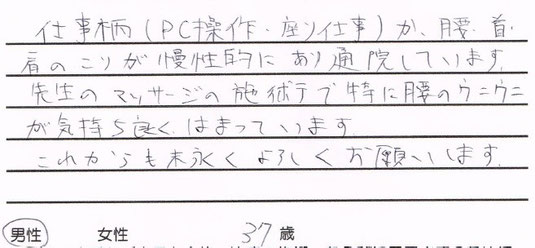 仕事柄(PC操作・座り仕事)か、腰・首・
肩のこりが慢性的にあり通院しています。
先生のマッサージの施術テで特に腰のウニウニ
が気持ち良く、はまっています。
これからも末永くよろしくお願いします。
男性 女性 37歳